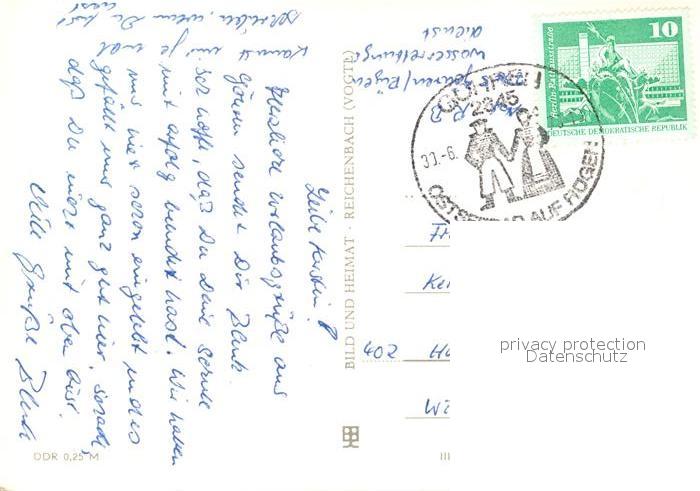 Liebe Kerstin!
Herzliche Urlaubsgrüße aus
Göhren sendet Dir Blank.
Ich hoffe, daß Du Deine Schule
mit Erfolg beendet hast. Wir haben
uns hier schon eingelebt und es
gefällt uns ganz gut hier, schade,
daß Du nicht mit oben bist.
Viele Grüße
Kannst mir ja mal
schreiben, wenn Du Lust
hast
DDR 0,25 M
BILD UND HEIMAT · REICHENBACH (VOGTL)
III
Göhren/Rügen
Wasserrettungs
dienst
10
Berlin-Rathausstraße
DEUTSCHE DEMOKRATISCHE REPUBLIK
GÖHREN 1
2345
30.-6.
OSTSEEBAD AUF RÜGEN
402
privacy protection
Datenschutz